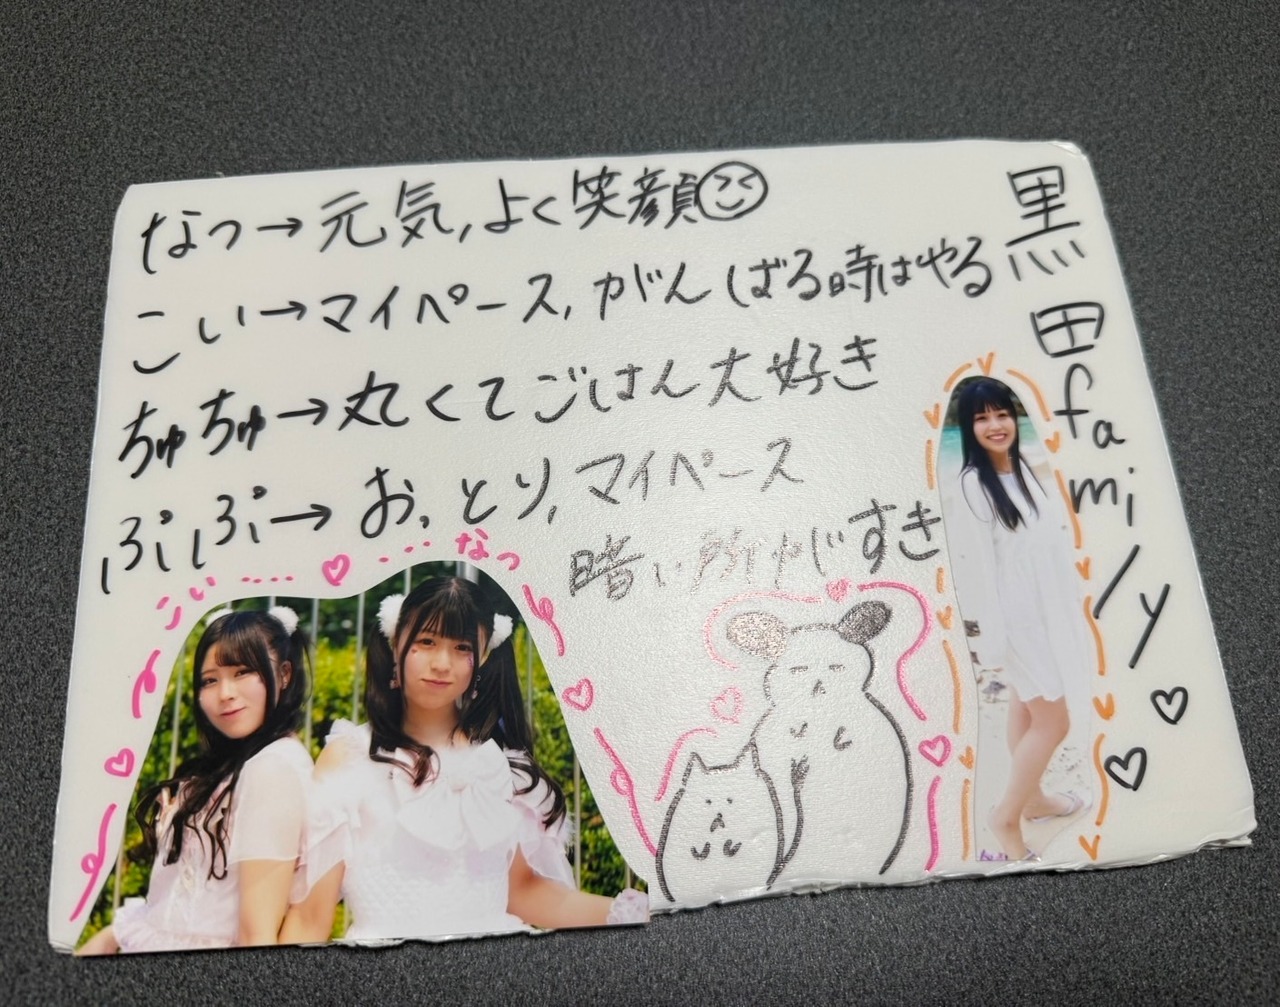 なっ→元気,よく笑顔
こい→マイペース,がんばる時はやる
ちゅちゅ→丸くてごはん大好き
ぷぃぷぃ→おっとり,マイペース
暗い所がすき
黒田family
こい
なっ